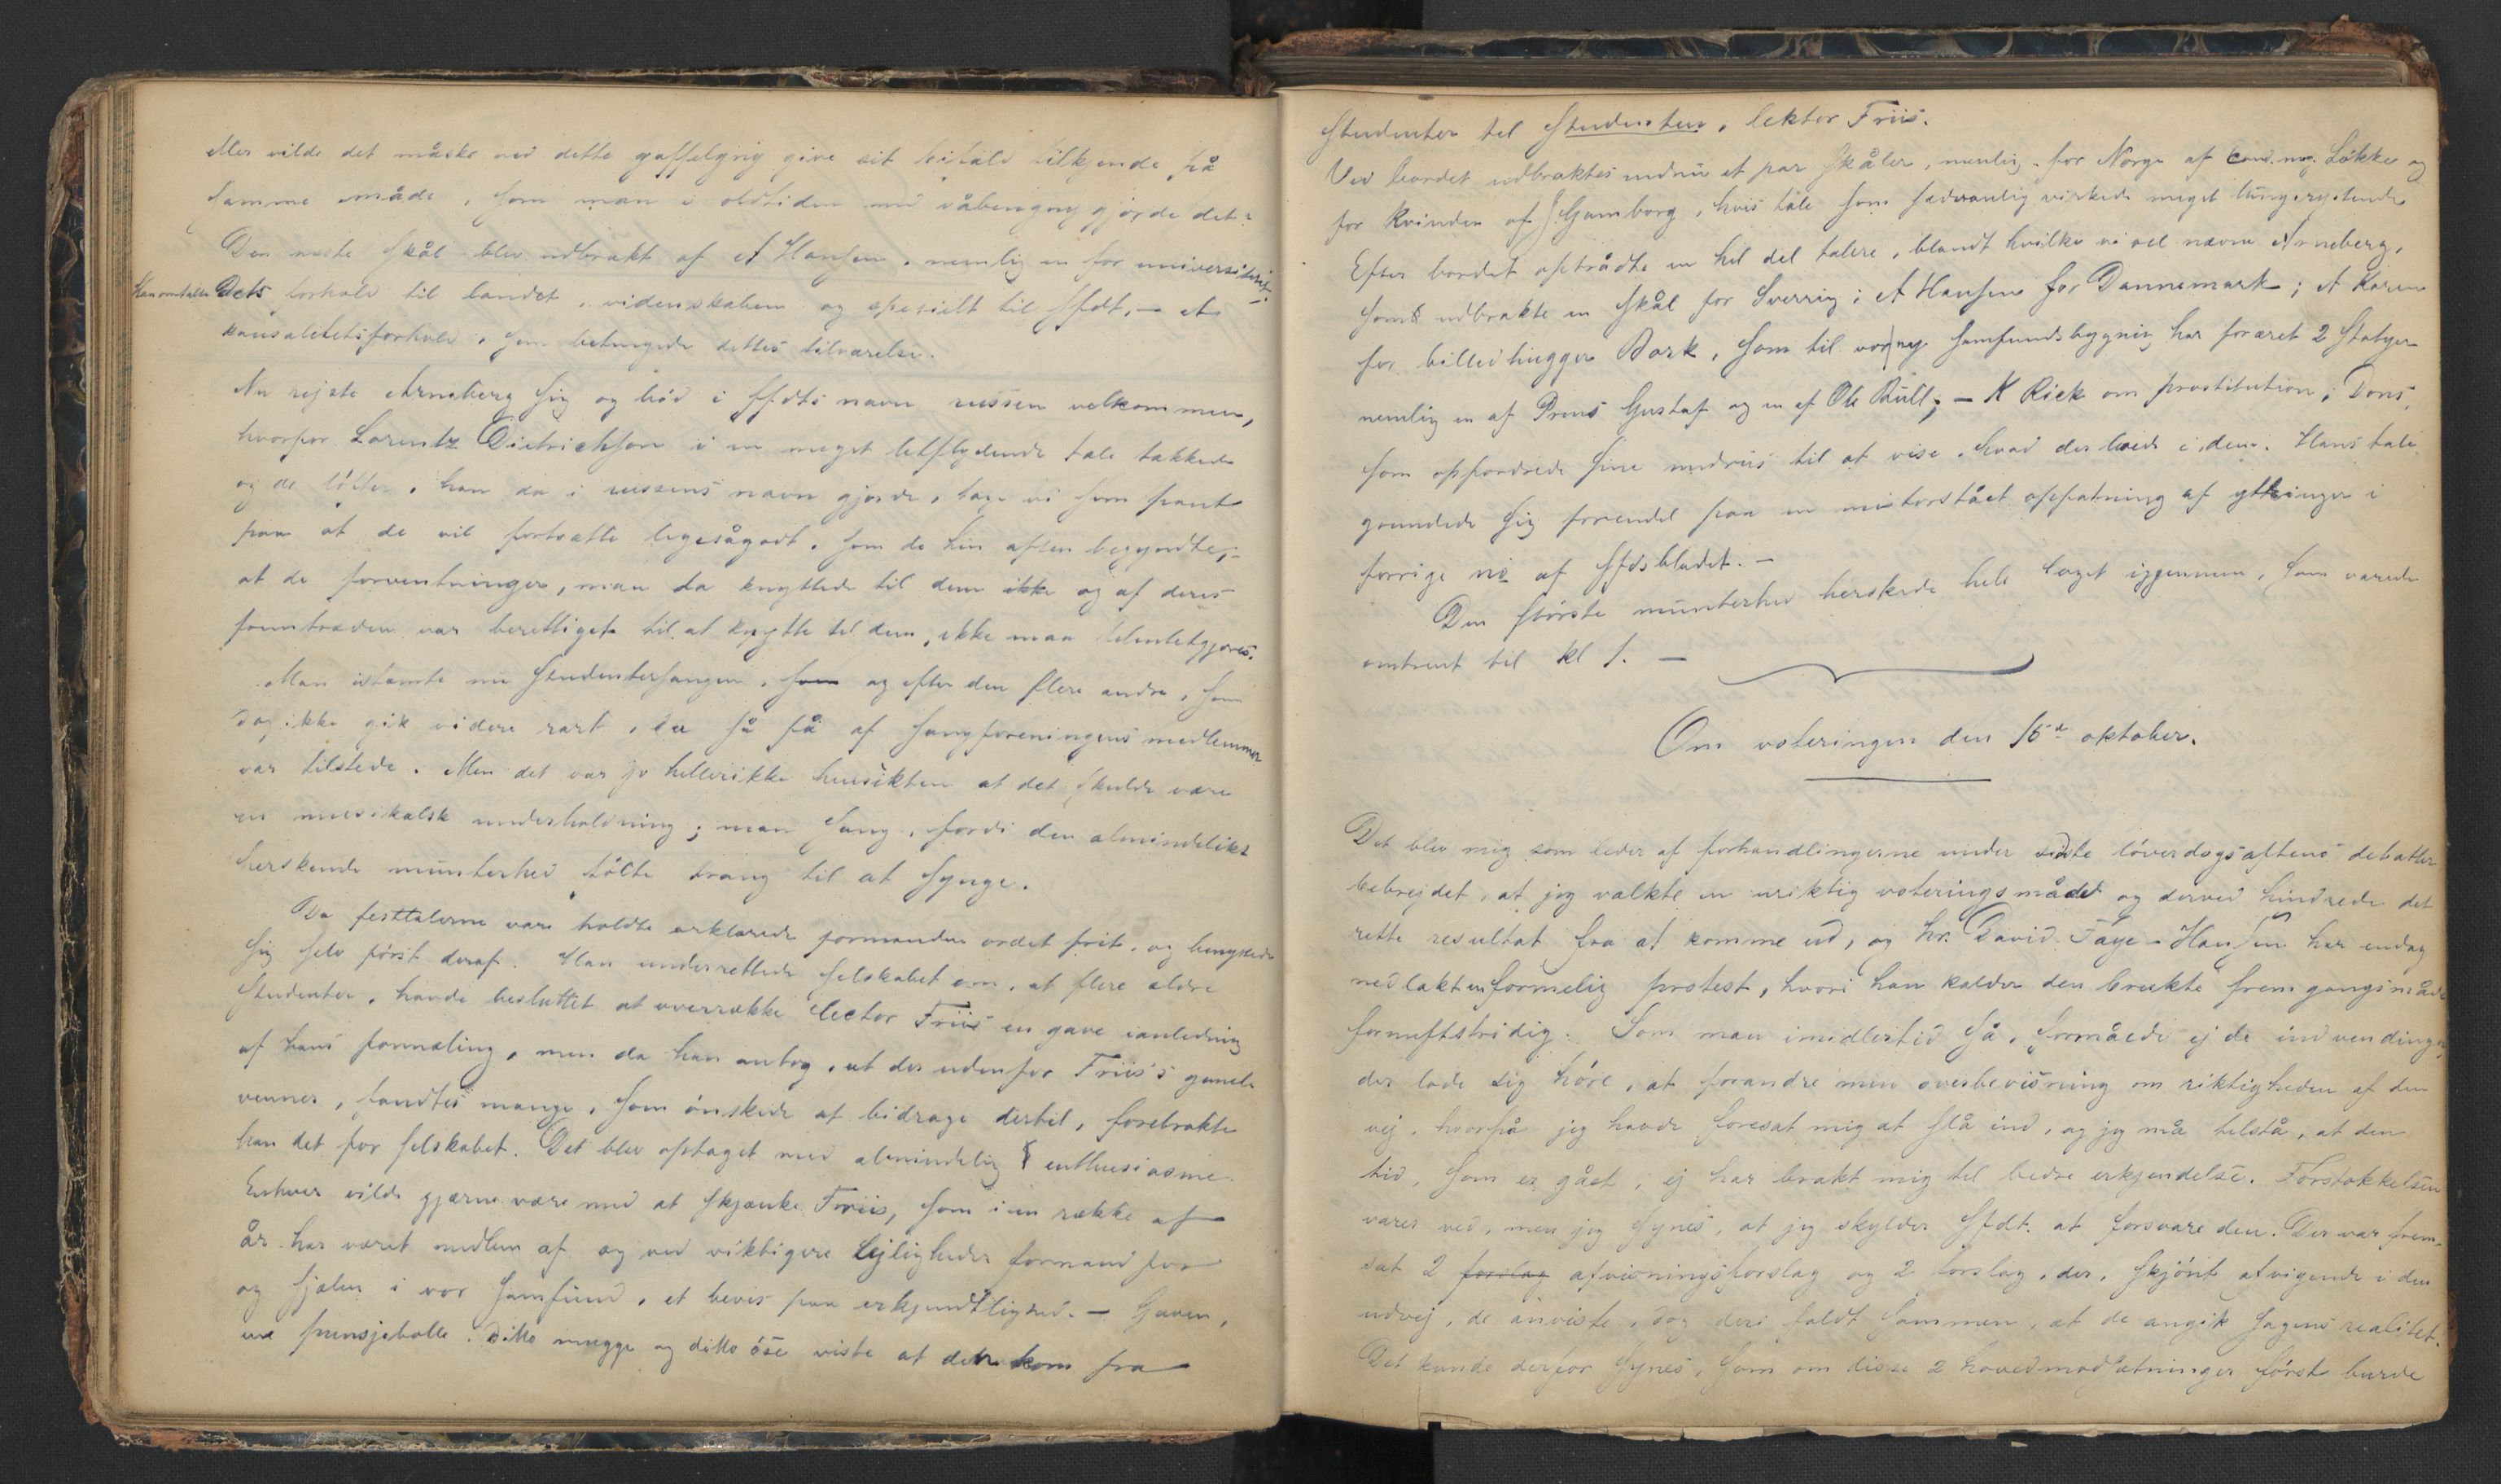 eller vilde det måske ved dette gaffelgny give sit bifald tilkjende på
samme måde, som man i oldtiden med våbengny gjorde det?
Den næste skål blev udbrakt af A Hansen, nemlig en for universitetet.
Han omtalte Dets forhold til landet, videnskaben og specielt til Sfdt, – et
kausalitetsforhold, som betingede dettes tilværelse.
Nu rejste Arneberg sig og bød i Sfdts navn russen velkommen,
hvorfor Lorentz Dietrichson i en meget letflydende tale takkede
og de løfter, han da i russens navn gjorde, tage vi som pant
paa at de vil fortsætte ligesågodt, som de hin aften begyndte, –
at de forventninger, man da knyttede til dem ikke og af deres
fremtræden var berettiget til at knytte til dem, ikke maa tilintetgjøres.
Man istemte nu Studentersangen, som og efter den flere andre, som
dog ikke gik videre rart, da så få af sangforeningens medlemmer
var tilstede. Men det var jo hellerikke hensikten at det skulde være
en musikalsk underholdning; man sang, fordi den almindelige
herskende munterhed følte trang til at synge.
Da festtalerne vare holdte erklærede formanden ordet frit, og benyttede
sig selv først deraf. Han underrettede selskabet om, at flere ældre
Studenter, havde besluttet at overrække lector Friis en gave i anledning
af hans formæling, men da han antog, at der udenfor Friis's gamle
venner, fandtes mange, som ønskede at bidrage dertil, forebrakte
han det for selskabet. Det blev optaget med almindelig enthusiasme.
Enhver vilde gjærne være med at skjænke Friis, som i en række af
år har været medlem af og ved viktigere lejligheder formand for
og sjælen i vor Samfund, et bevis paa erkjendtlighed. – Gaven,
en punsjebolle, ditto mugge og ditto øse viste at den kom fra
Studenter til Studenten, lektor Friis.
Ved bordet udbraktes endnu et par skåler, nemlig for Norge af Cand. mag. Løkke og
for kvinden af J Gamborg, hvis tale som sædvanlig virkede meget lungerystende
Efter bordet optrådte en hel del talere, blandt hvilke vi vel nævne Arneberg,
som udbrakte en skål for Sverrig; A Hansen for Dannemark; A Koren
for billedhugger Bork, som til vor ny samfundsbygning har foræret 2 Statyer
nemlig en af Prins Gustaf og en af Ole Bull; – K Rick om prostitution; Dons,
som opfordrede sine medrus til at vise, hvad der boede i dem. Hans tale
grundede sig forresten paa en misforstået oppfatning af yttringer i
forrige no af Sfdsbladet. –
Den største munterhed herskede hele laget igjennem, som varede
omtrent til kl 1. –
Om voteringen den 15de oktober.
Det blev mig som leder af forhandlingerne under sidste løverdagsaftens debatter
bebrejdet, at jeg valkte en uriktig voteringsmåde og derved hindrede det
rette resultat fra at komme ud, og hr. David Faye-Hansen har endog
nedlakt en formelig protest, hvori han kalder den brukte fremgangsmåde
fornuftstridig. Som man imidlertid så, formåede ej de indvendinger,
der lode sig høre, at forandre min overbevisning om riktigheden af den
vej, hvorpå jeg havde foresat mig at slå ind, og jeg må tilstå, at den
tid, som er gået, ej har brakt mig til bedre erkjendelse. Forstokkelsen
varer ved, men jeg synes, at jeg skylder Sfdt. at forsvare den. Der var frem-
sat 2 forslag afvisningsforslag og 2 forslag, der, skjønt afvigende i den
udvej, de anviste, dog deri faldt sammen, at de angik sagens realitet.
Det kunde derfor synes, som om disse 2 hovedmodsætninger først burde